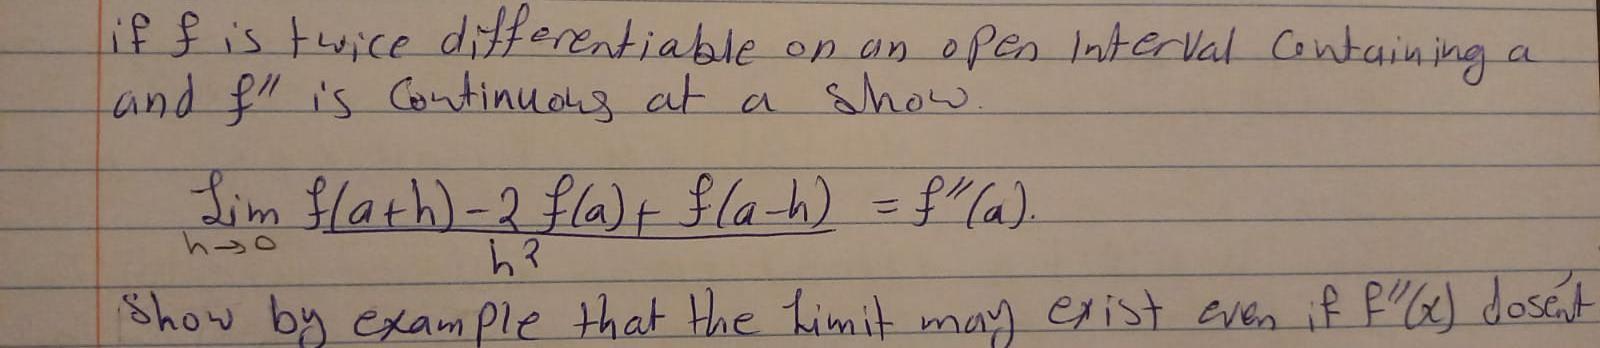 if f is twice differentiable on an open interval containing a
and f'' is continuous at a show.
lim f(a+h) - 2 f(a) + f(a-h) = f''(a).
h→0 h²
Show by example that the limit may exist even if f''(x) dose'nt